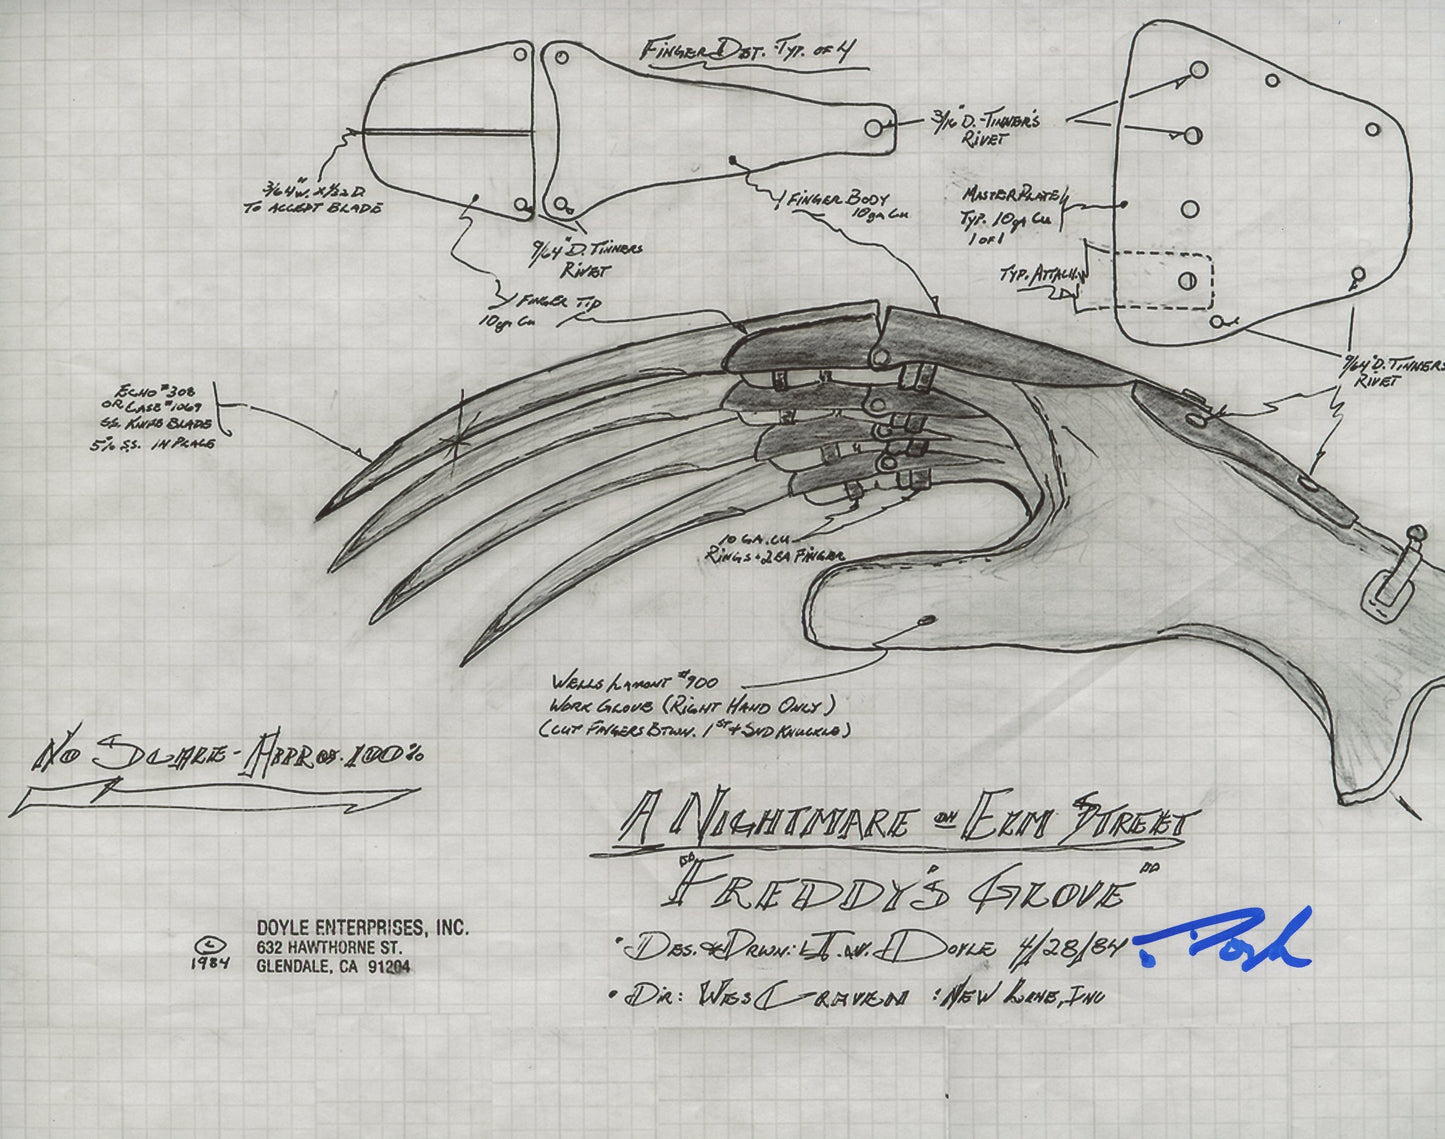 Finger Det. - Typ. of 4
3/16" D. - Tinner's
Rivet
3/64" W. x 1/32 D.
To Accept Blade
Finger Body
10ga Cu
Master Plate
Typ. 10ga Cu
1 of 1
9/64" D. Tinners
Rivet
Typ. Attach.
Finger Tip
10ga Cu
9/64" D. Tinners
Rivet
Echo #308
or Case #1069
SS. Knife Blade
S.S. in Place
10 ga. Cu
Rings - 2 ea Finger
Wells Lamont #900
Work Glove (Right Hand Only)
(Cut Fingers Btwn. 1st + 2nd Knuckle)
No Scale - Approx. 100%
A Nightmare on Elm Street
"Freddy's Glove"
DOYLE ENTERPRISES, INC.
© 632 HAWTHORNE ST.
1984 GLENDALE, CA 91204
• Des. & Drwn: Doyle 4/28/84
• Dir: Wes Craven : New Line, Inc